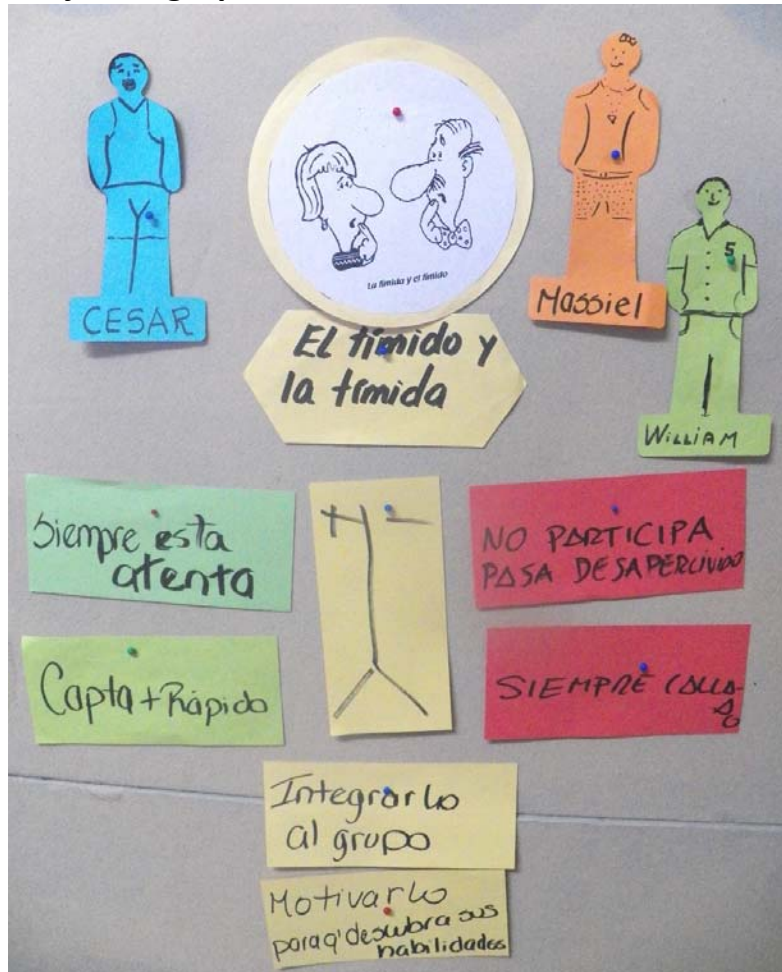 CESAR
La tímida y el tímido
Massiel
5
WILLIAM
El tímido y
la tímida
Siempre esta
atenta
+ -
NO PARTICIPA
PASA DESAPERCIVIDO
Capta + Rápido
SIEMPRE CALLA-
DO
Integrarlo
al grupo
Motivarlo
para q' descubra sus
habilidades